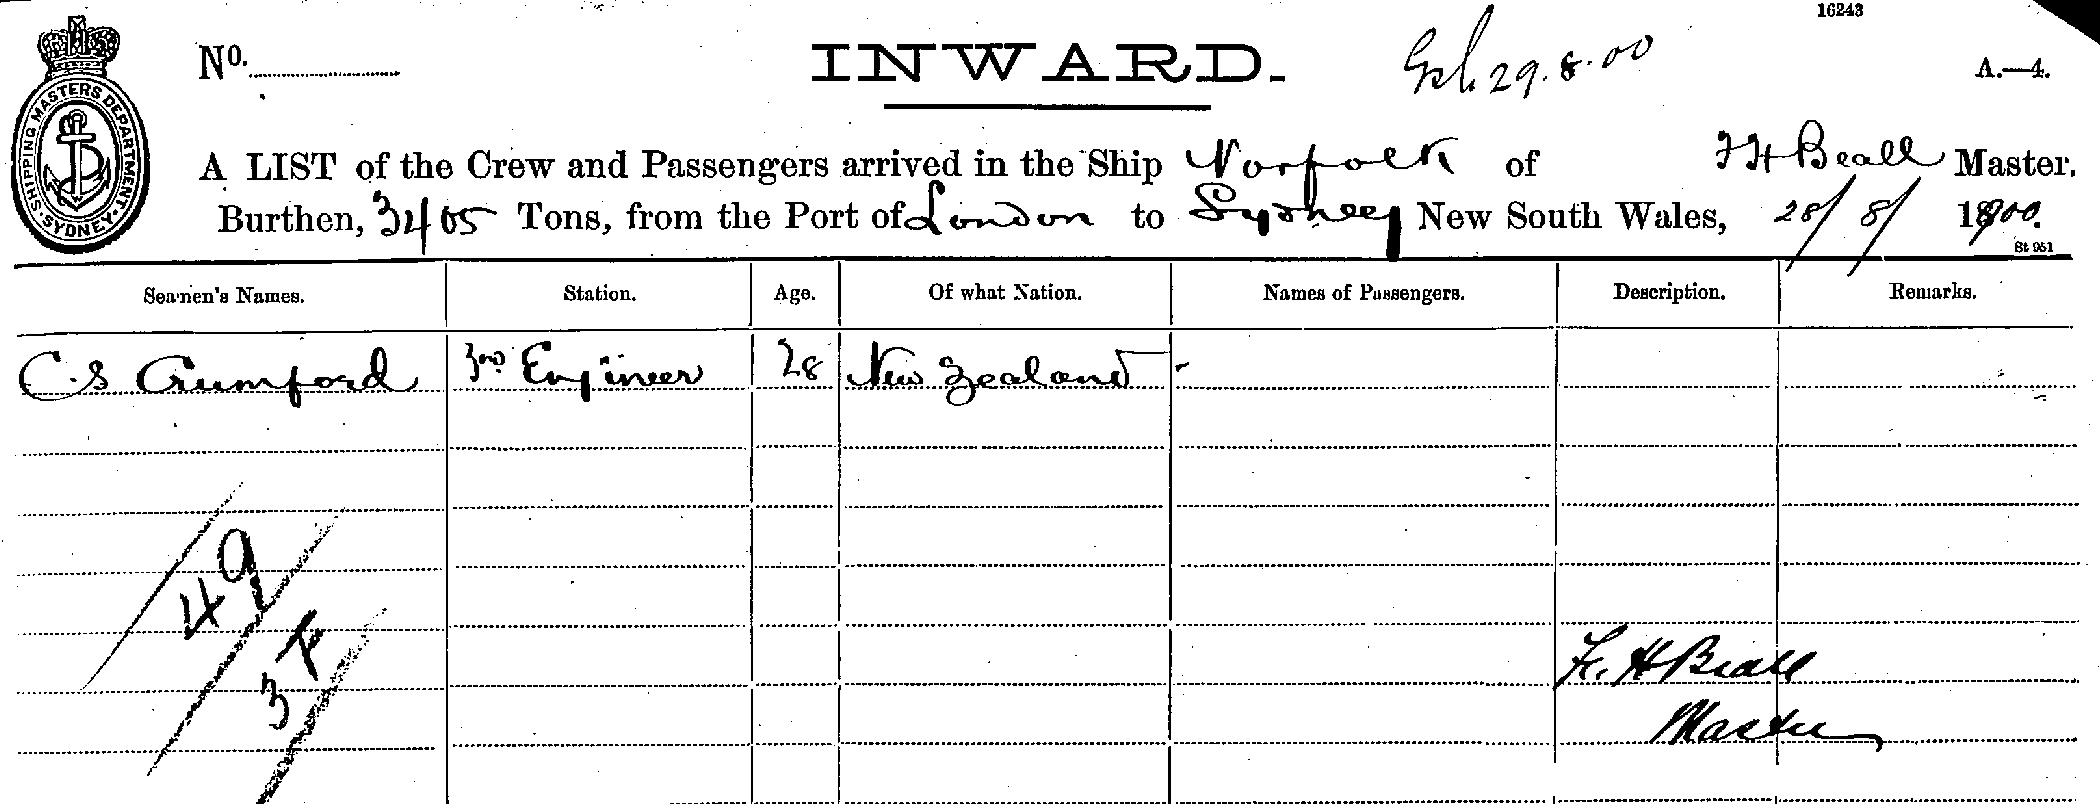 16243
No. INWARD. 29.8.00 A.—4.
SHIPPING MASTERS DEPARTMENT. SYDNEY.
A LIST of the Crew and Passengers arrived in the Ship Norfolk of F H Beall Master,
Burthen, 3405 Tons, from the Port of London to Sydney New South Wales, 28/8/1900.
St 951
Seamen's Names. Station. Age. Of what Nation. Names of Passengers. Description. Remarks.
C. S Crumford 3rd Engineer 28 New Zealand
49
F. H Beall
Master